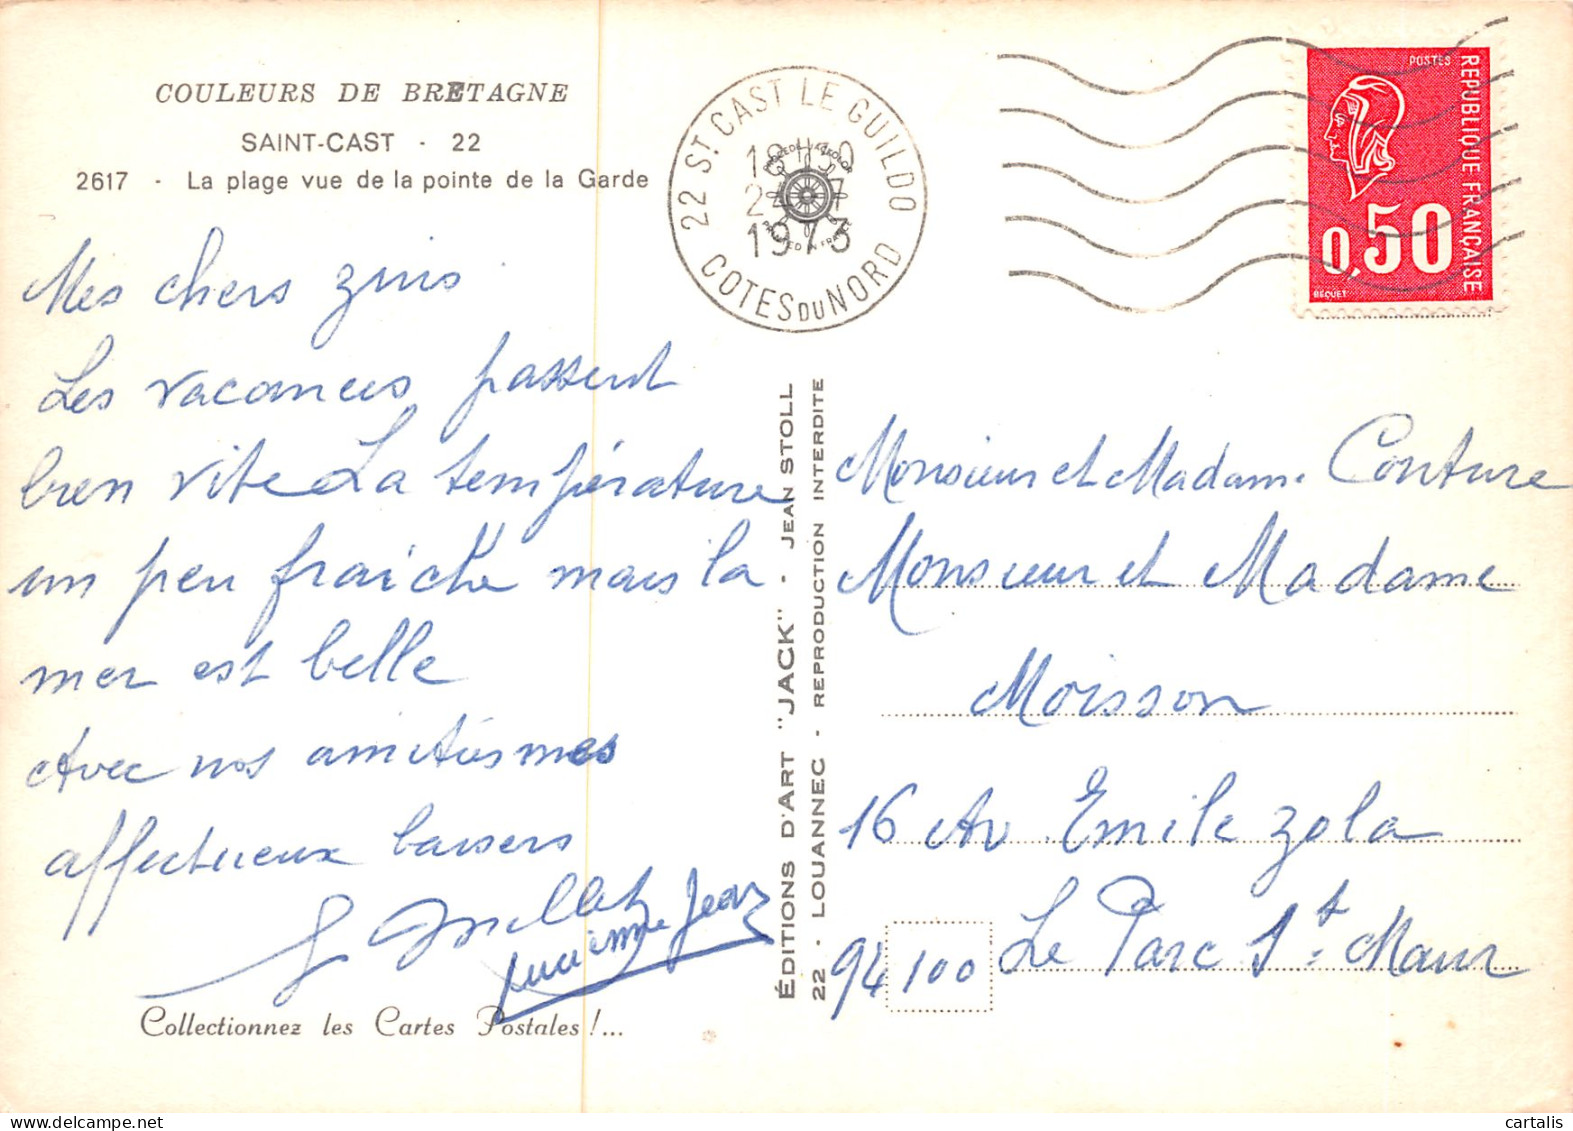 COULEURS DE BRETAGNE
SAINT-CAST - 22
2617 - La plage vue de la pointe de la Garde
Mes chers zins
Les vacances passent
bien vite La température
un peu fraiche mais la
mer est belle
Avec nos amitiés mes
affectueux baisers
Lucienne Jean
Collectionnez les Cartes Postales !...
22 ST. CAST LE GUILDO
1973
COTES DU NORD
POSTES
REPUBLIQUE FRANÇAISE
0,50
BEQUET
ÉDITIONS D'ART "JACK" - JEAN STOLL
22 - LOUANNEC - REPRODUCTION INTERDITE
Monsieur et Madame Couture
Monsieur et Madame
Moisson
16 Av Emile Zola
94100 Le Parc St. Maur
cartalis